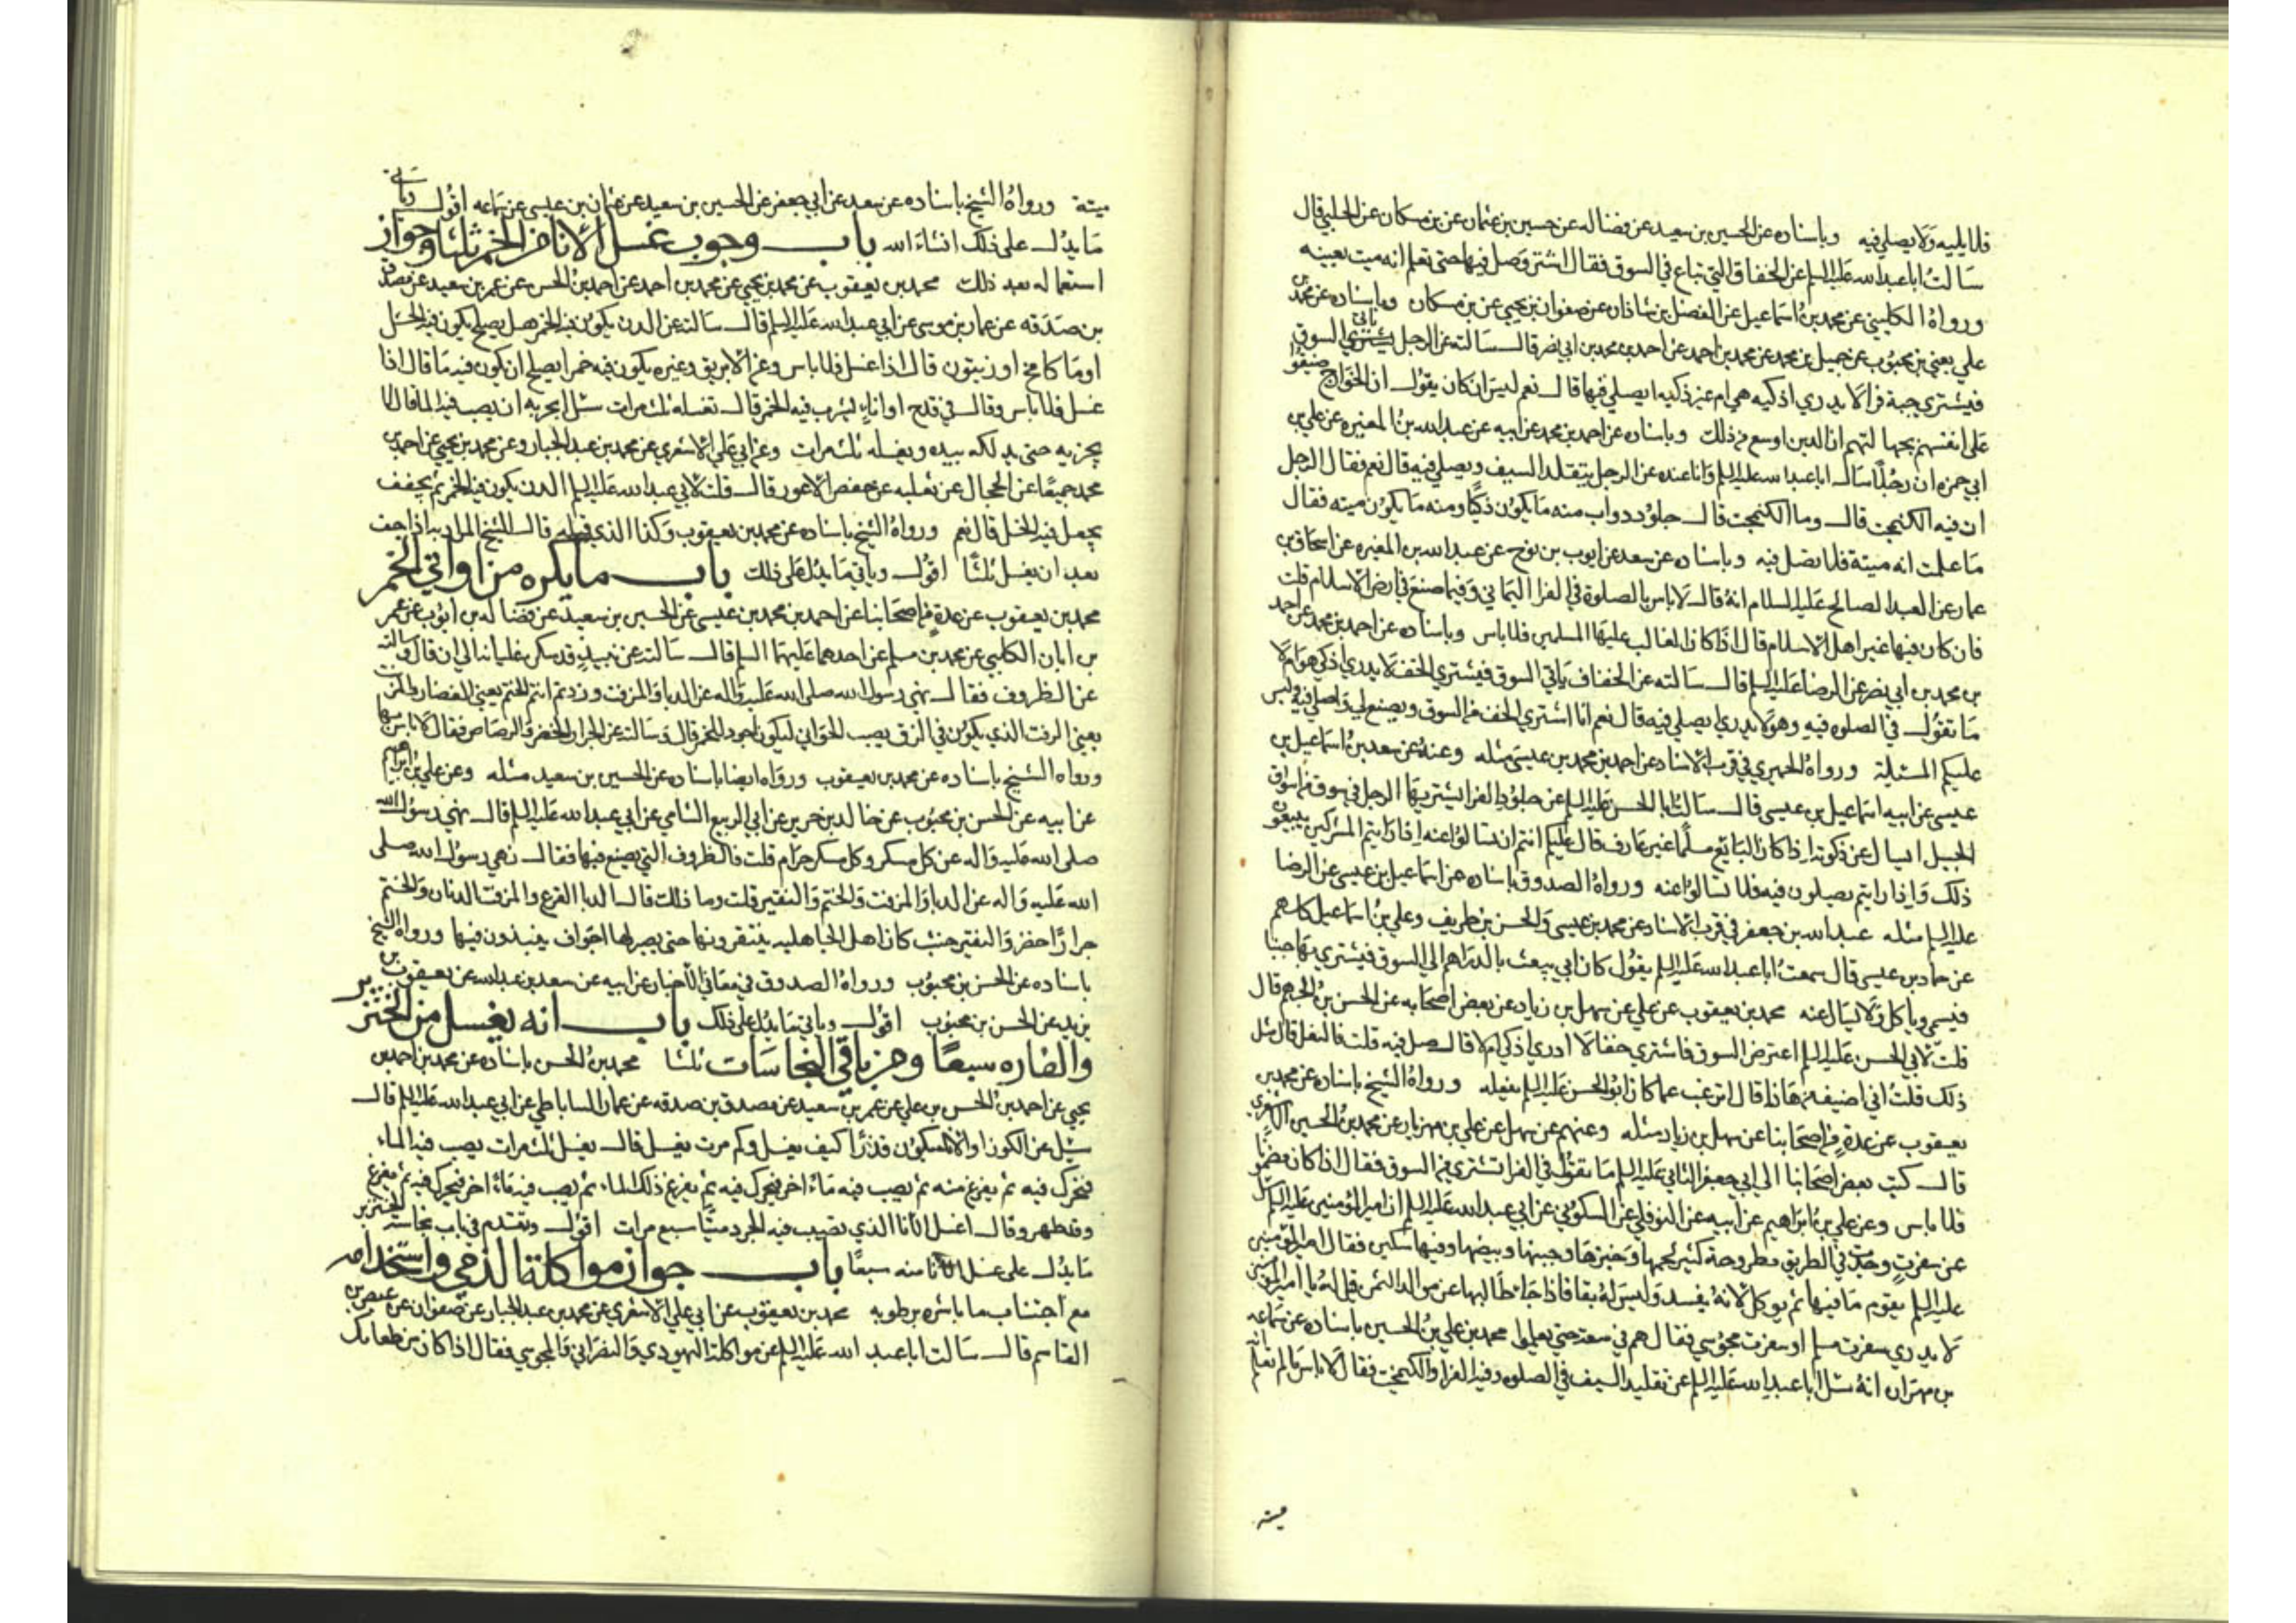 فلا يلبيه ولا يصلي فيه وباسناده عن الحسين بن سعيد عن فضاله عن حسين بن عثمان عن بن مسكان عن الحلبي قال
سالت ابا عبد الله عليه السلم عن الخفاف التي تباع في السوق فقال اشتر وصل فيها حتى تعلم انه ميت بعينه
ورواه الكليني عن محمد بن اسماعيل عن الفضل بن شاذان عن صفوان بن يحيى عن بن مسكان وباسناده عن محمد بن
علي يعني بن محبوب عن جميل بن محمد عن محمد بن احمد عن احمد بن محمد بن ابي نصر قال سالته عن الرجل ياتي السوق
فيشتري جبة فرا لا يدري اذكيه هي ام غير ذكيه ايصلي فيها قال نعم ليس ان كان يقول ان الخوارج ضيقوا
على انفسهم بجهالتهم ان الدين اوسع من ذلك وباسناده عن احمد بن محمد عن ابيه عن عبد الله بن المغيره عن علي بن
ابي حمزه ان رجلا سال ابا عبد الله عليه السلم وانا عنده عن الرجل يتقلد السيف ويصلي فيه قال نعم فقال الرجل
ان فيه الكنيمخت قال وما الكنيمخت قال جلود دواب منه ما يكون ذكيا ومنه ما يكون ميته فقال
ما علمت انه ميتة فلا تصل فيه وباسناده عن سعد عن ايوب بن نوح عن عبد الله بن المغيره عن اسحاق بن
عمار عن العبد الصالح عليه السلام انه قال لا باس بالصلوة في الفرا اليماني وفيما صنع في ارض الاسلام قلت
فان كان فيها غير اهل الاسلام قال اذا كان الغالب عليها المسلمين فلا باس وباسناده عن احمد بن محمد عن احمد
بن محمد بن ابي نصر عن الرضا عليه السلم قال سالته عن الخفاف ياتي السوق فيشتري الخف لا يدري اذكي هو ام لا
ما تقول في الصلوه فيه وهو لا يدري ايصلي فيه قال نعم انا اشتري الخف من السوق ويصنع لي واصلي فيه وليس
عليكم المسئلة ورواه الحميري في قرب الاسناد عن احمد بن محمد بن عيسى مثله وعنه عن سعد بن اسماعيل بن
عيسى عن ابيه اسماعيل بن عيسى قال سالت ابا الحسن عليه السلم عن جلود الفرا يشتريها الرجل في سوق من اسواق
الجبل ايسال عن ذكوته اذا كان البايع مسلما غير عارف قال عليكم انتم ان تسالوا عنه اذا رايتم المشركين يبيعون
ذلك واذا رايتم يصلون فيه فلا تسالوا عنه ورواه الصدوق باسناده عن اسماعيل بن عيسى عن الرضا
عليه السلم مثله عبد الله بن جعفر في قرب الاسناد عن محمد بن عيسى والحسن بن طريف وعلي بن اسماعيل كلهم
عن حماد بن عيسى قال سمعت ابا عبد الله عليه السلم يقول كان ابي يبعث بالدراهم الى السوق فيشتري بها جبنا
فيسمي وياكل ولا يسال عنه محمد بن يعقوب عن علي عن سهل بن زياد عن بعض اصحابه عن الحسن بن الجهم قال
قلت لابي الحسن عليه السلم اعترض السوق فاشتري خفا لا ادري اذكي ام لا قال صل فيه قلت فالنعل قال مثل
ذلك قلت اني اضيق من هذا قال اترغب عما كان ابو الحسن عليه السلم يفعله ورواه الشيخ باسناده عن محمد بن
يعقوب عن عدة من اصحابنا عن سهل بن زياد مثله وعنهم عن سهل عن علي بن مهزيار عن محمد بن الحسين الاشعري
قال كتب بعض اصحابنا الى ابي جعفر الثاني عليه السلم ما تقول في الفرا تشتري من السوق فقال اذا كان مضمونا
فلا باس وعن علي بن ابراهيم عن ابيه عن النوفلي عن السكوني عن ابي عبد الله عليه السلم ان امير المومنين عليه السلم سئل
عن سفرت وجدت في الطريق مطروحة كثير لحمها وخبزها وجبنها وبيضها وفيها سكين فقال امير المومنين
عليه السلم يقوم ما فيها ثم يوكل لانه يفسد وليس له بقا فاذا جا طالبها غرموا له الثمن قيل له يا امير المومنين
لا يدري سفرت مسلم او سفرت مجوسي فقال هم في سعة حتى يعلموا محمد بن علي بن الحسين باسناده عن سماعه
بن مهران انه سئل ابا عبد الله عليه السلم عن تقليد السيف في الصلوه وفيه الفرا والكنيمخت فقال لا باس مالم تعلم انه
ميته
ميتة ورواه الشيخ باسناده عن سعد عن ابي جعفر عن الحسين بن سعيد عن عثمان بن عيسى عن سماعه اقول وياتي
ما يدل على ذلك انشاء الله باب وجوب غسل الانا من الخمر ثلثا وجواز
استعماله بعد ذلك محمد بن يعقوب عن محمد بن يحيى عن محمد بن احمد عن احمد بن الحسن عن عمر بن سعيد عن مصدق
بن صدقه عن عمار بن موسى عن ابي عبد الله عليه السلم قال سالته عن الدن يكون فيه الخمر هل يصلح يكون فيه الخل
اوما كامخ او زيتون قال اذا غسل فلا باس وعن الابريق وغيره يكون فيه خمر ايصلح ان يكون فيه ما قال اذا
غسل فلا باس وقال في قدح او اناء يشرب فيه الخمر قال تغسله ثلث مرات سئل ايجزيه ان يصب فيه الما قال لا
يجزيه حتى يدلكه بيده ويغسله ثلث مرات وعن ابي علي الاشعري عن محمد بن عبد الجبار وعن محمد بن يحيى عن احمد بن
محمد جميعا عن الحجال عن ثعلبه عن حفص الاعور قال قلت لابي عبد الله عليه السلم الدن يكون فيه الخمر ثم يجفف
يجعل فيه الخل قال نعم ورواه الشيخ باسناده عن محمد بن يعقوب وكذا الذي قبله قال الشيخ المراد به اذا جف
بعد ان يغسل ثلثا اقول وياتي ما يدل على ذلك باب ما يكره من اواني الخمر
محمد بن يعقوب عن عدة من اصحابنا عن احمد بن محمد بن عيسى عن الحسين بن سعيد عن فضاله بن ايوب عن عمر
بن ابان الكلبي عن محمد بن مسلم عن احدهما عليهما السلم قال سالته عن نبيذ قد سكن غليانه الى ان قال وسالته
عن الظروف فقال نهى رسول الله صلى الله عليه واله عن الدبا والمزفت وزدتم انتم الحنتم يعني الغضار والمزفت
يعني الزفت الذي يكون في الزق يصب الخوابي ليكون اجود للخمر قال وسالته عن الجرار الخضر والرصاص فقال لا باس بها
ورواه الشيخ باسناده عن محمد بن يعقوب ورواه ايضا باسناده عن الحسين بن سعيد مثله وعن علي بن ابراهيم
عن ابيه عن الحسن بن محبوب عن خالد بن جرير عن ابي الربيع الشامي عن ابي عبد الله عليه السلم قال نهى رسول الله
صلى الله عليه واله عن كل مسكر وكل مسكر حرام قلت فالظروف التي يصنع فيها فقال نهى رسول الله صلى
الله عليه واله عن الدبا والمزفت والحنتم والنقير قلت وما ذلك قال الدبا القرع والمزفت الدنان والحنتم
جرار خضر والنقير خشب كان اهل الجاهليه ينتقرونها حتى يصير لها اجواف ينبذون فيها ورواه الشيخ
باسناده عن الحسن بن محبوب ورواه الصدوق في معاني الاخبار عن ابيه عن سعد بن عبد الله عن يعقوب بن
يزيد عن الحسن بن محبوب اقول وياتي ما يدل على ذلك باب انه يغسل من الخنزير
والفاره سبعا ومن باقي النجاسات ثلثا محمد بن الحسن باسناده عن محمد بن احمد بن
يحيى عن احمد بن الحسن بن علي عن عمر بن سعيد عن مصدق بن صدقه عن عمار الساباطي عن ابي عبد الله عليه السلم قال
سئل عن الكوز او الانا يكون قذرا كيف يغسل وكم مرت يغسل قال يغسل ثلث مرات يصب فيه الماء
فيحرك فيه ثم يفرغ منه ثم يصب فيه ماء اخر فيحرك فيه ثم يفرغ ذلك الماء ثم يصب فيه ماء اخر فيحرك فيه ثم يفرغ
وقد طهر وقال اغسل الانا الذي تصيب فيه الجرد ميتا سبع مرات اقول وتقدم في باب نجاسة الخنزير
ما يدل على غسل الانا منه سبعا باب جواز مواكلة الذمي واستخدامه
مع اجتناب ما باشره برطوبه محمد بن يعقوب عن ابي علي الاشعري عن محمد بن عبد الجبار عن صفوان عن عيص بن
القاسم قال سالت ابا عبد الله عليه السلم عن مواكلة اليهودي والنصراني والمجوسي فقال اذا كان من طعامك